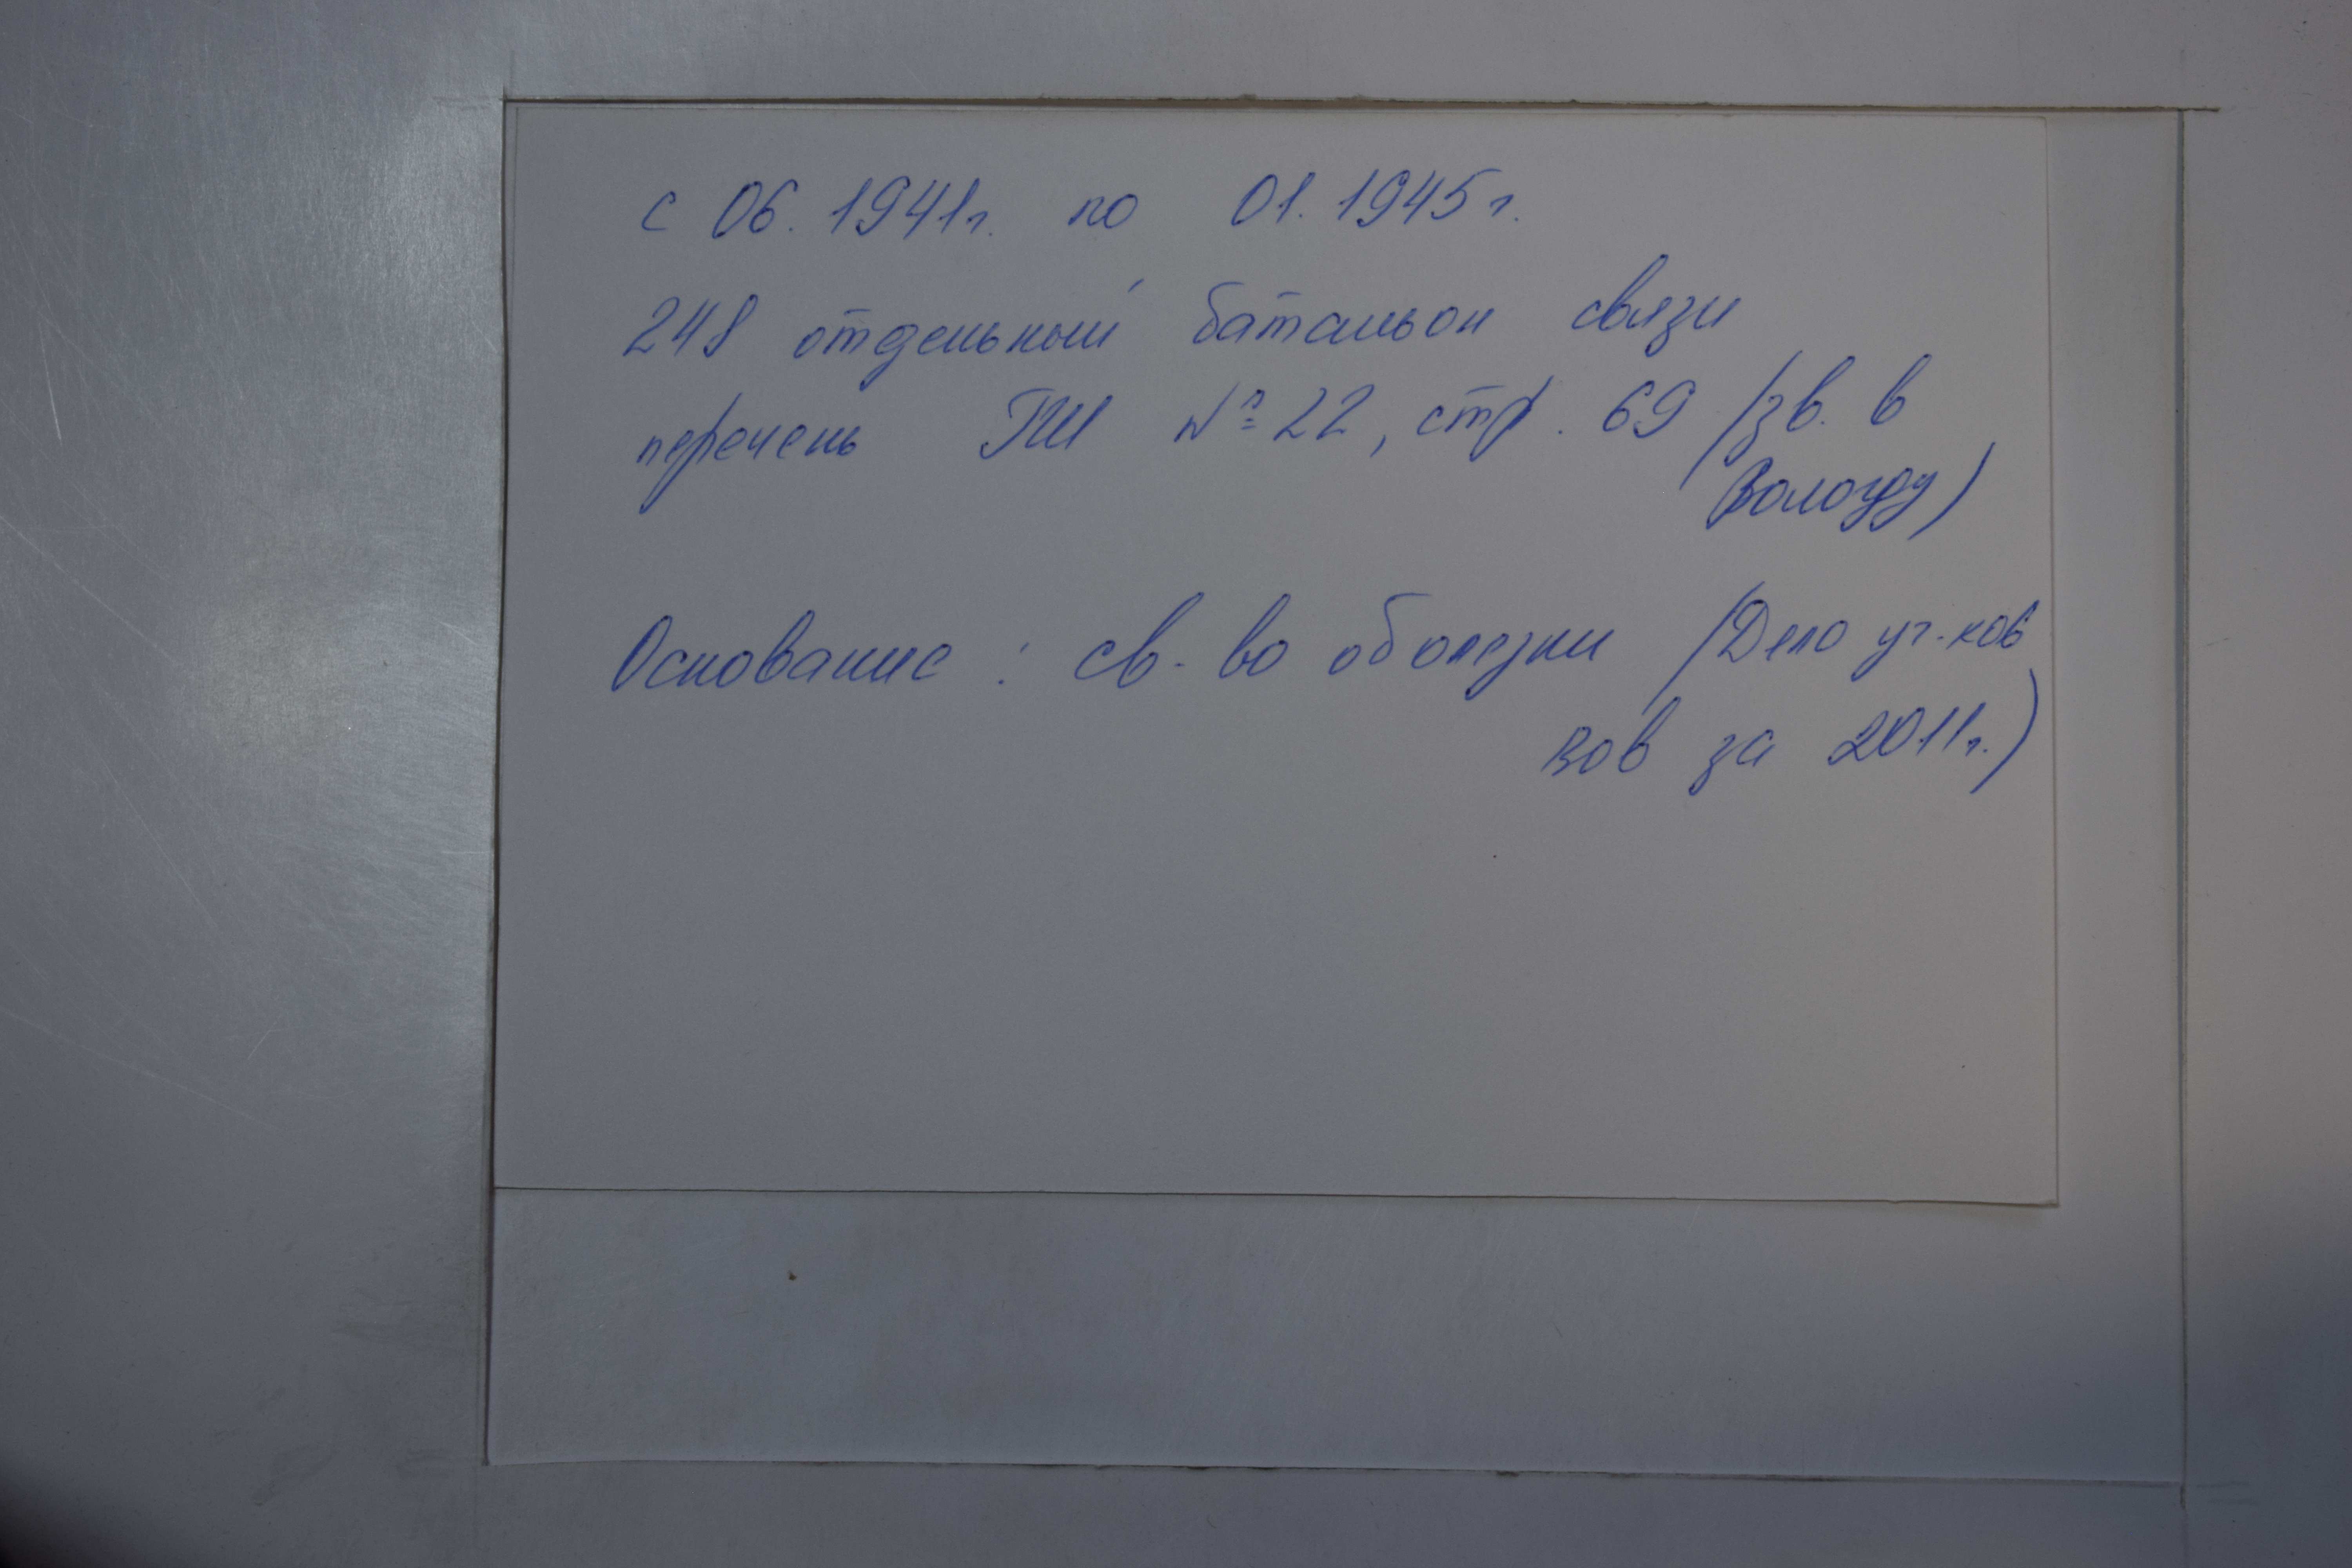 с 06. 1941г. по 01. 1945г.
248 отдельный батальон связи
перечень ГШ № 22, стр. 69 (зв. в
Вологду)
Основание: св-во о болезни (Дело уч-ков
ВОВ за 2011г.)